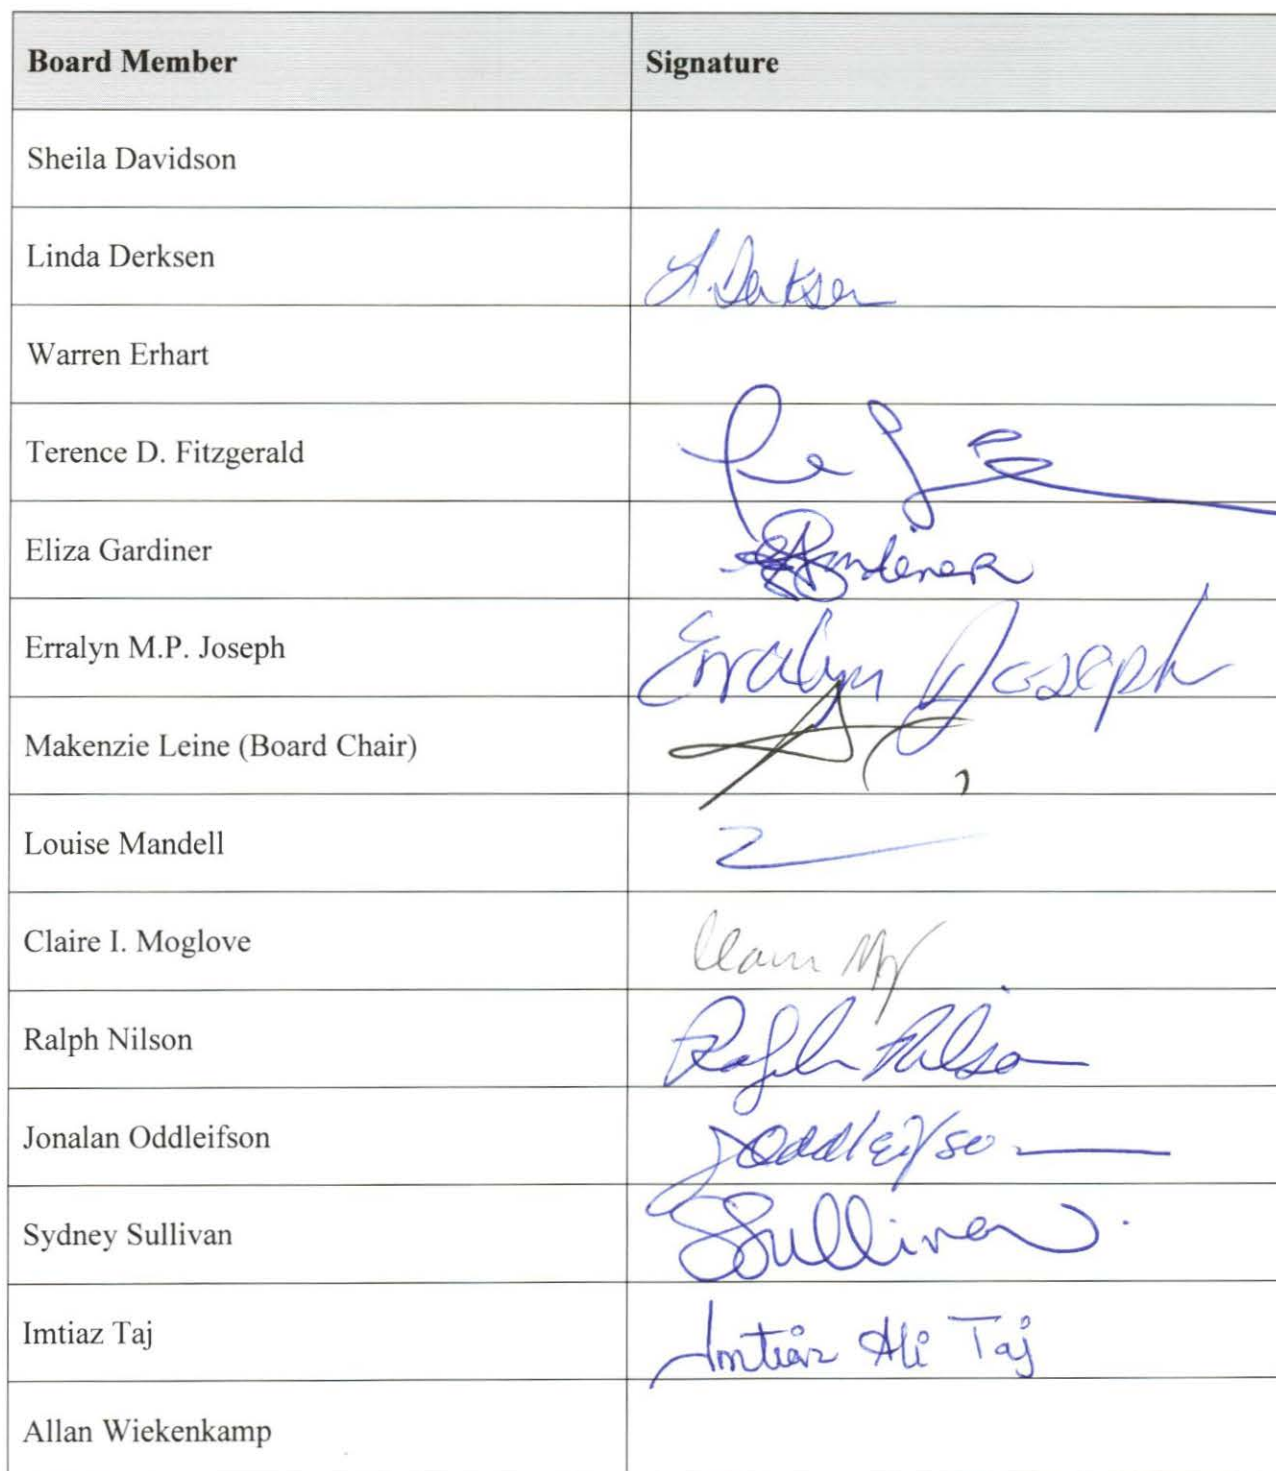 Board Member Signature
Sheila Davidson
Linda Derksen L. Derksen
Warren Erhart
Terence D. Fitzgerald
Eliza Gardiner Gardiner
Erralyn M.P. Joseph Erralyn Joseph
Makenzie Leine (Board Chair)
Louise Mandell
Claire I. Moglove
Ralph Nilson Ralph Nilson
Jonalan Oddleifson JOddleifson
Sydney Sullivan SSullivan
Imtiaz Taj Imtiaz Ali Taj
Allan Wiekenkamp